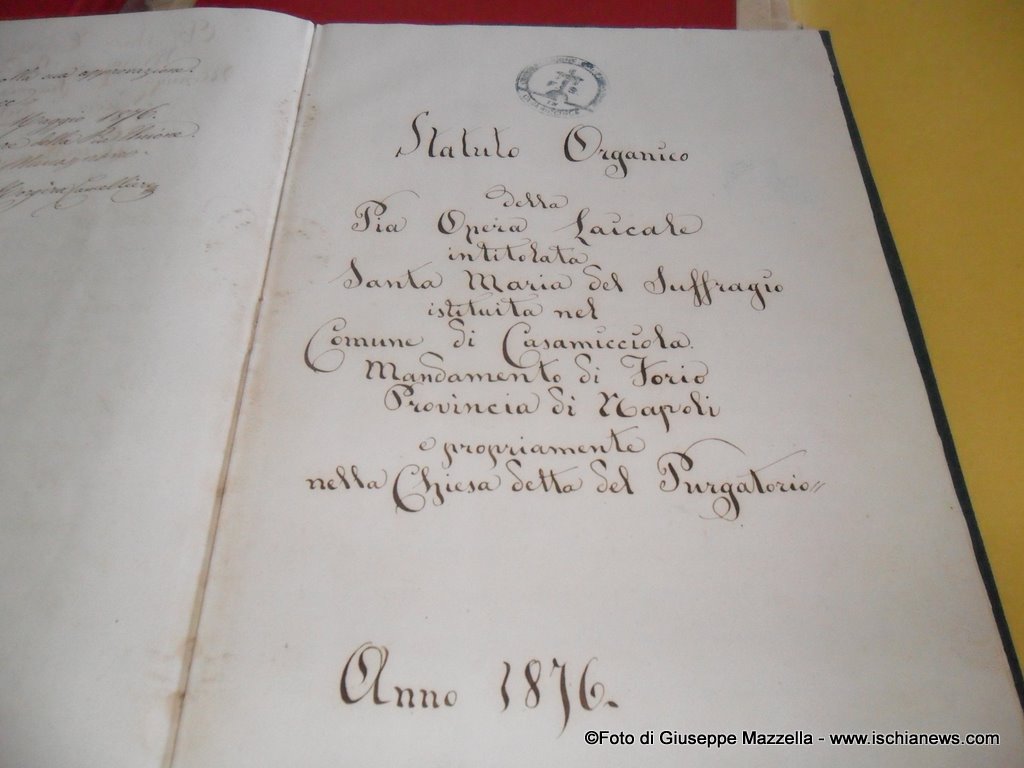 alla sua approvazione.
Maggio 1876.
Statuto Organico
della
Pia Opera Laicale
intitolata
Santa Maria del Suffragio
istituita nel
Comune di Casamicciola.
Mandamento di Forio
Provincia di Napoli
e propriamente
nella Chiesa detta del Purgatorio
Anno 1876.
©Foto di Giuseppe Mazzella - www.ischianews.com